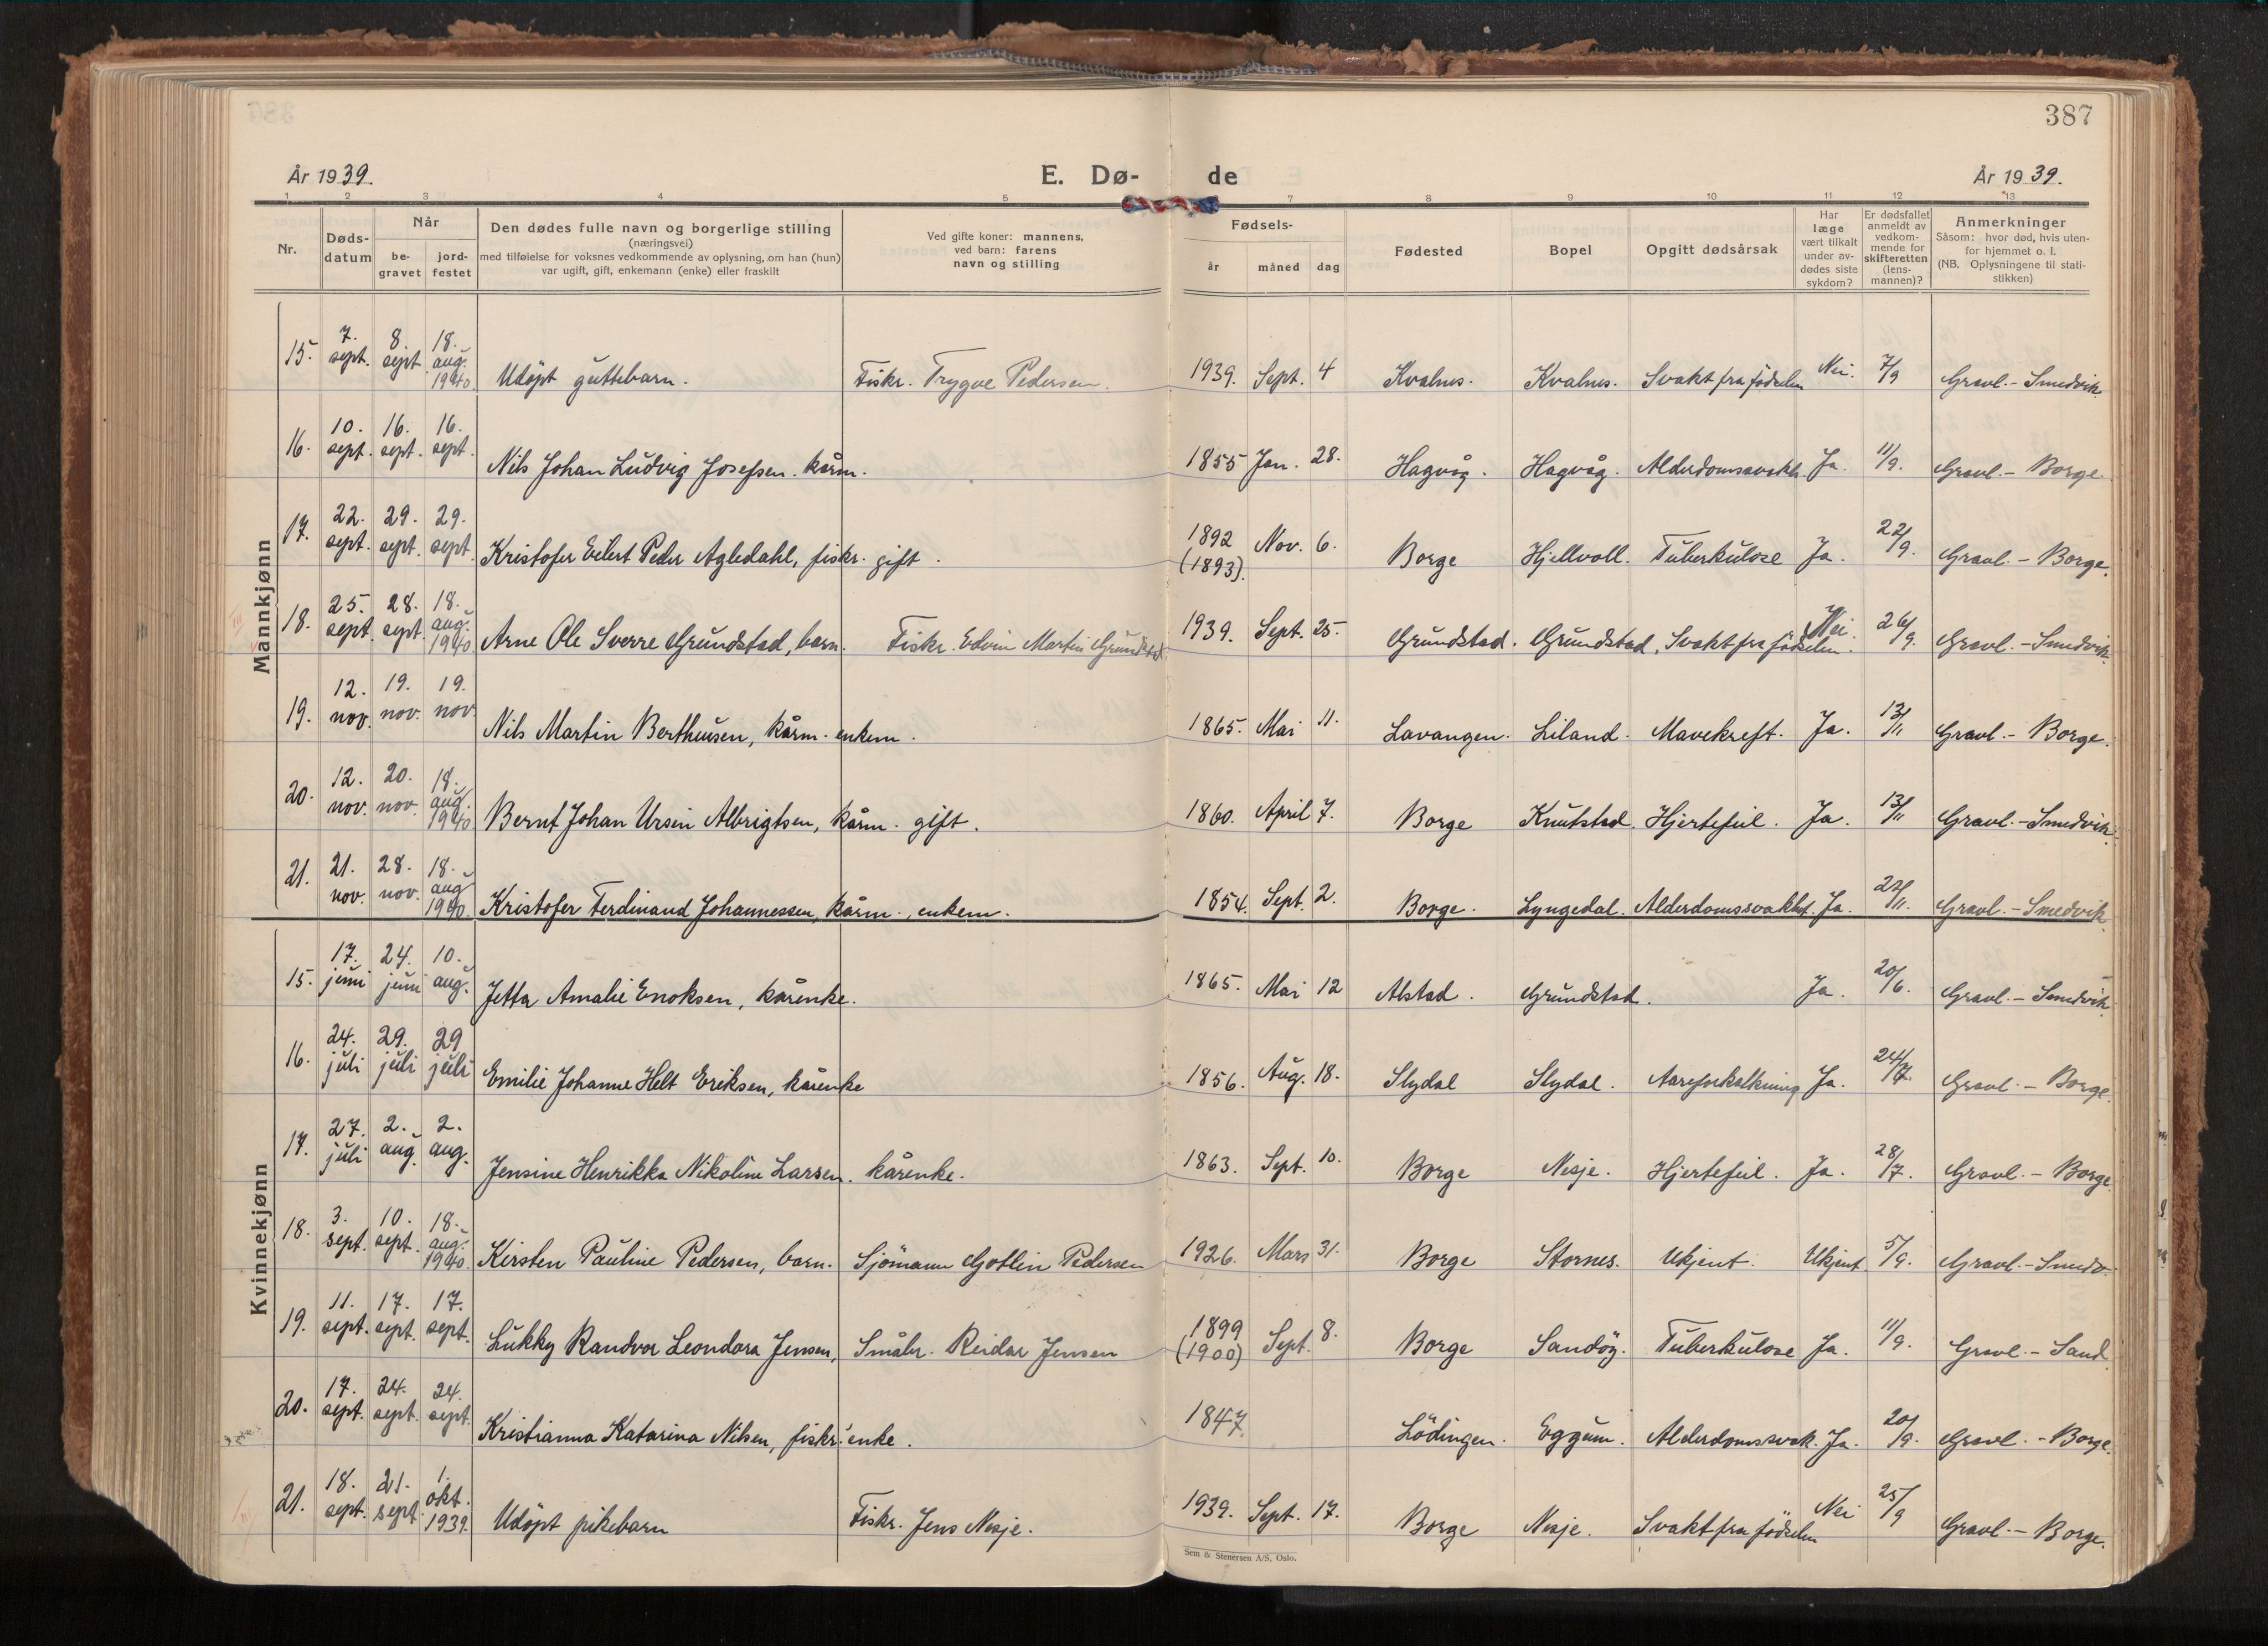 387
År 1939. E. Dø- de År 1939.
1 2 3 4 5 7 8 9 10 11 12 13
Nr. Døds-datum Når be-gravet jord-festet Den dødes fulle navn og borgerlige stilling (næringsvei) med tilføielse for voksnes vedkommende av oplysning, om han (hun) var ugift, gift, enkemann (enke) eller fraskilt Ved gifte koner: mannens, ved barn: farens navn og stilling Fødsels- år måned dag Fødested Bopel Opgitt dødsårsak Har læge vært tilkalt under av-dødes siste sykdom? Er dødsfallet anmeldt av vedkom-mende for skifteretten (lens-mannen)? Anmerkninger Såsom: hvor død, hvis uten-for hjemmet o. l. (NB. Oplysningene til stati-stikken)
Mannkjønn
15. 7. sept. 8. sept. 18. aug. 1940 Udöpt guttebarn. Fiskr. Trygve Pedersen. 1939. Sept. 4 Kvalnes. Kvalnes. Svakt fra födselen Nei. 7/9 Gravl. - Smedvik.
16. 10. sept. 16. sept. 16. sept. Nils Johan Ludvig Josefsen. kårm. 1855 Jan. 28. Hagvåg. Hagvåg. Alderdomssvakh. Ja. 11/9. Gravl. - Borge.
17. 22. sept. 29. sept. 29. sept. Kristofer Eilert Peder Agledahl, fiskr. gift. 1892 (1893). Nov. 6. Borge Hjellvoll. Tuberkulose Ja. 22/9. Gravl. - Borge.
18. 25. sept. 28. sept. 18. aug. 1940 Arne Ole Sverre Grundstad, barn. Fiskr. Edvin Martin Grundstad 1939. Sept. 25. Grundstad. Grundstad. Svakt fra födselen. Nei. 26/9. Gravl. - Smedvik.
19. 12. nov. 19. nov. 19. nov. Nils Martin Bertheusen, kårm. enkem. 1865. Mai 11. Lavangen. Liland. Mavekreft. Ja. 13/11 Gravl. - Borge.
20. 12. nov. 20. nov. 18. aug. 1940 Bernt Johan Ursin Albrigtsen, kårm. gift. 1860. April 7. Borge Knutstad. Hjertefeil. Ja. 13/11 Gravl. - Smedvik.
21. 21. nov. 28. nov. 18. aug 1940. Kristofer Ferdinand Johannessen, kårm., enkem. 1854. Sept. 2. Borge. Lyngedal. Alderdomssvakhet. Ja. Gravl. - Smedvik.
Kvinnekjønn
15. 17. juni 24. juni 10. aug. Jetta Amalie Enoksen, kårenke. 1865. Mai 12 Alstad. Grundstad. Ja. 20/6. Gravl. - Smedvik.
16. 24. juli 29. juli 29 juli Emilie Johanne Helt Eriksen, kårenke 1856. Aug. 18. Slydal Slydal. Aareforkalkning Ja. 24/7. Gravl. - Borge.
17. 27. juli 2. aug. 2. aug. Jensine Henrikka Nikoline Larsen. kårenke. 1863. Sept. 10. Borge Nesje. Hjertefeil. Ja. 28/7. Gravl. - Borge.
18. 3. sept. 10. sept. 18. aug. 1940. Kirsten Pauline Pedersen, barn. Sjömann Gotlin Pedersen 1926. Mars 31. Borge Stornes. Ukjent. Ukjent. 5/9. Gravl. - Smedv.
19. 11. sept. 17. sept. 17. sept. Lukky Randvor Leondora Jensen, Småbr. Reidar Jensen 1899 (1900) Sept. 8. Borge Sandöy. Tuberkulose Ja. 11/9. Gravl. - Sand.
20. 17. sept. 24. sept. 24. sept. Kristianna Katarina Nilsen, fiskr. enke. 1847. Lödingen. Eggum. Alderdomssvak. Ja. 20/9. Gravl. - Borge.
21. 18. sept. 21. sept. 1. okt. 1939. Udöpt pikebarn Fiskr. Jens Nesje. 1939. Sept. 17. Borge Nesje. Svakt fra födselen Nei 25/9 Gravl. - Borge.
Sem & Stenersen A/S, Oslo.